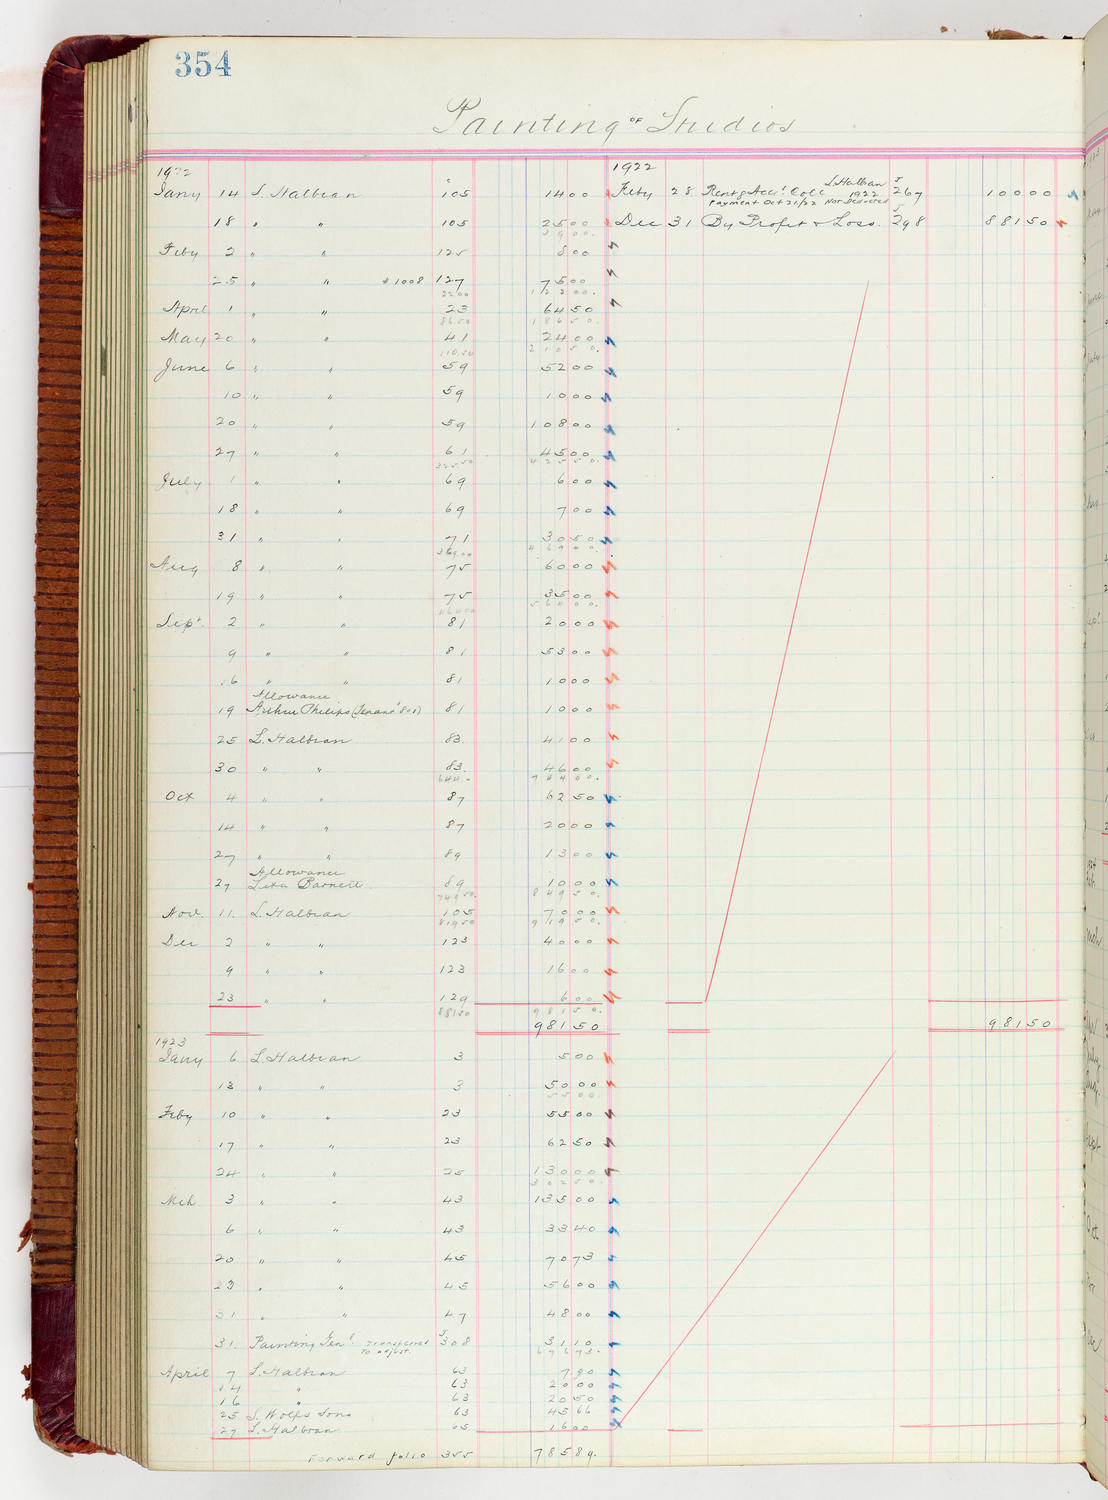 354
Painting of Studios
1922
Jany 14 L. Halbran c 105 14 00
18 " " 105 25 00
39 00.
Feby 2 " " 125 8 00
25 " " #1008 127 75 00
22 00 122 00.
April 1 " " 23 64 50
86.50 186 50.
May 20 " " 41 24 00
110.50 210 50.
June 6 " " 59 52 00
10 " " 59 10 00
20 " " 59 108 00
27 " " 61 45 00
325.50 425 50.
July 1 " " 69 6 00
18 " " 69 7 00
31 " " 71 30 50
369.00 469 00.
Aug 8 " " 75 60 00
19 " " 75 35 00
464 00 564 00.
Sept. 2 " " 81 20 00
9 " " 81 53 00
16 " " 81 10 00
Allowance
19 Arthur Philips (Tenant 801) 81 10 00
25 L. Halbran 83. 41 00
30 " " 83. 46 00
644 - 744 00.
Oct 4 " " 87 62 50
14 " " 87 20 00
27 " " 89 13 00
Allowance
27 Lixa Barnett 89 10 00
749 50. 849 50.
Nov. 11. L. Halbran 105 70 00
819 50 919 50.
Dec 2 " " 123 40 00
9 " " 123 16 00
23 " " 129 6 00
881 50 981 50.
981 50
1923
Jany 6 L. Halbran 3 5 00
13 " " 3 50 00
55 00
Feby 10 " " 23 55 00
17 " " 23 62 50
24 " " 25 130 00
302 50.
Mch 3 " " 43 135 00
6 " " 43 33 40
20 " " 45 70 73
23 " " 45 56 00
31 " " 47 48 00
31. Painting Genl. Transferred J 308 31 10
To adjust. 676 73.
April 7 L. Halbran 63 7 90
14 " 63 20 00
16 " 63 20 50
25 S. Wolfs Sons 63 45 66
27 L. Halbran 65 16 00
Forward folio 355 785 89.
1922
Feby 28 Rent, Acc. Cole L. Halbran 1922 J 267 100 00
Payment Oct 21/22 Not Deducted
Dec 31 By Profit & Loss. J 298 881 50
981 50